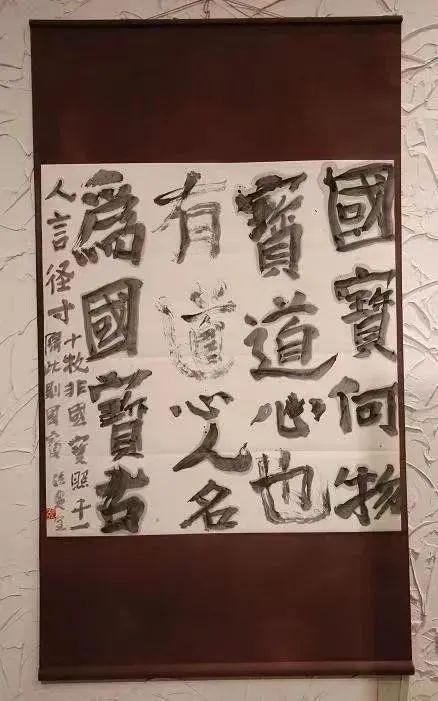 國寶何物
寶道心也
有道心人名
爲國寶古
人言径寸
十枚非國寶照于一
隅此則国寶